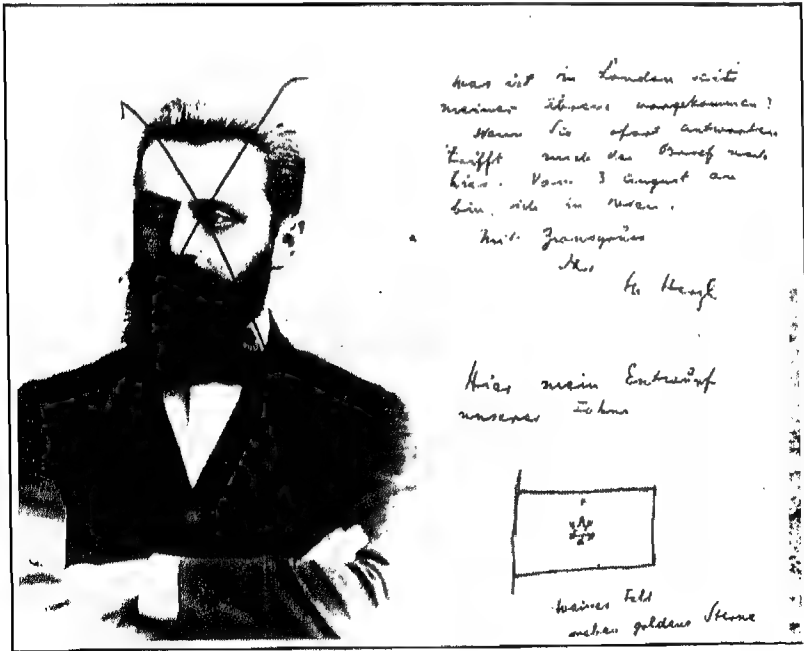 was ist in London seit
meiner Abreise vorgekommen?
Wenn Sie sofort antworten
trifft mich der Brief noch
hier. Vom 3 August an
bin ich in Wien.
Mit Zionsgruss
Ihr
Th Herzl
Hier mein Entwurf
unserer Fahne
weisses Feld
sieben goldene Sterne